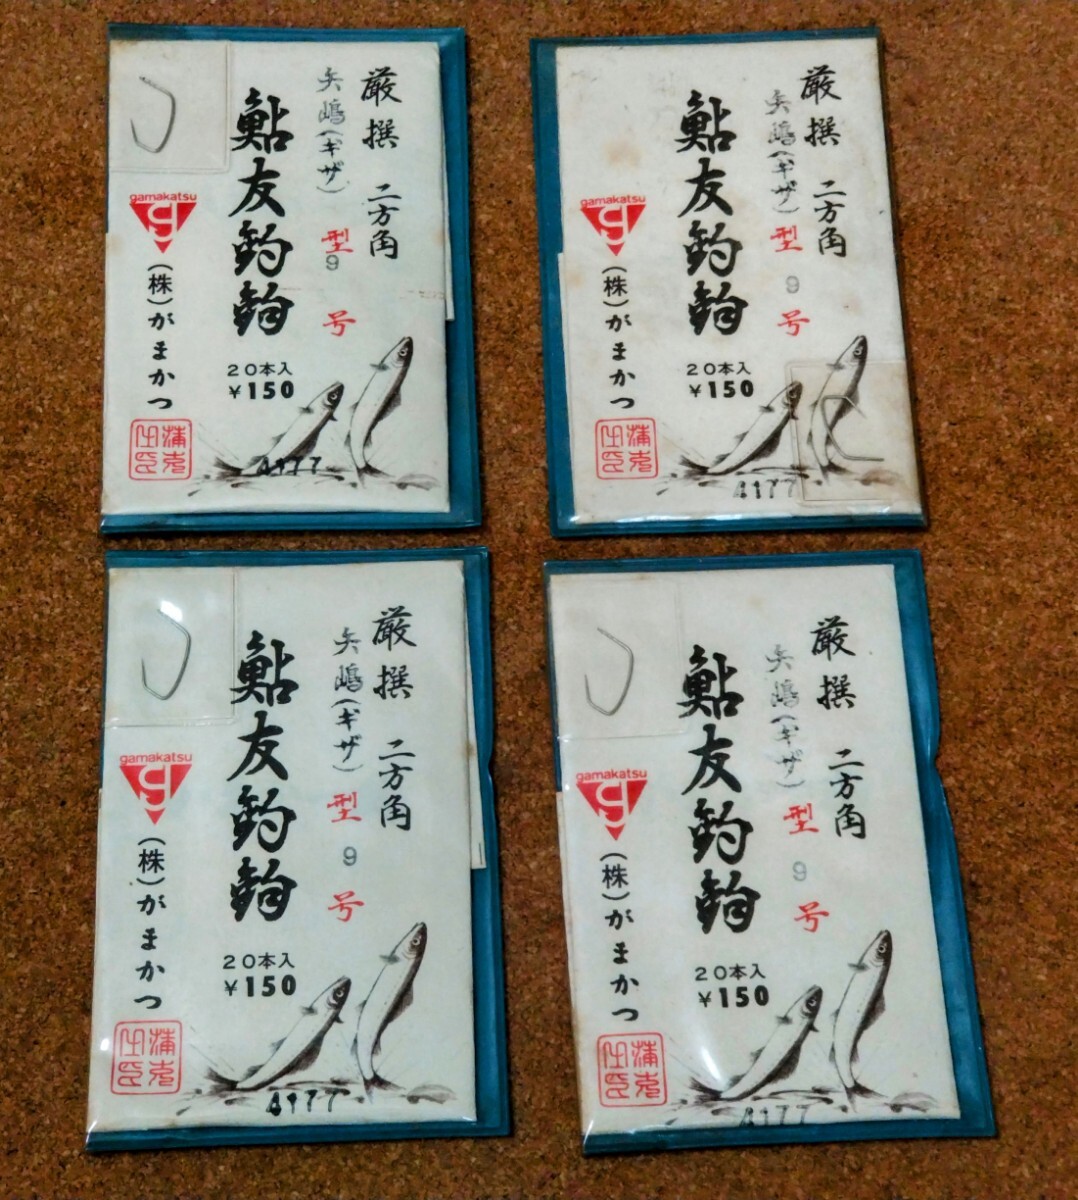 厳撰 二方角
矢嶋(ギザ)型 9号
鮎友釣鈎
20本入
¥150
gamakatsu
(株)がまかつ
4177
厳撰 二方角
矢嶋(ギザ)型 9号
鮎友釣鈎
20本入
¥150
gamakatsu
(株)がまかつ
4177
厳撰 二方角
矢嶋(ギザ)型 9号
鮎友釣鈎
20本入
¥150
gamakatsu
(株)がまかつ
4177
厳撰 二方角
矢嶋(ギザ)型 9号
鮎友釣鈎
20本入
¥150
gamakatsu
(株)がまかつ
4177